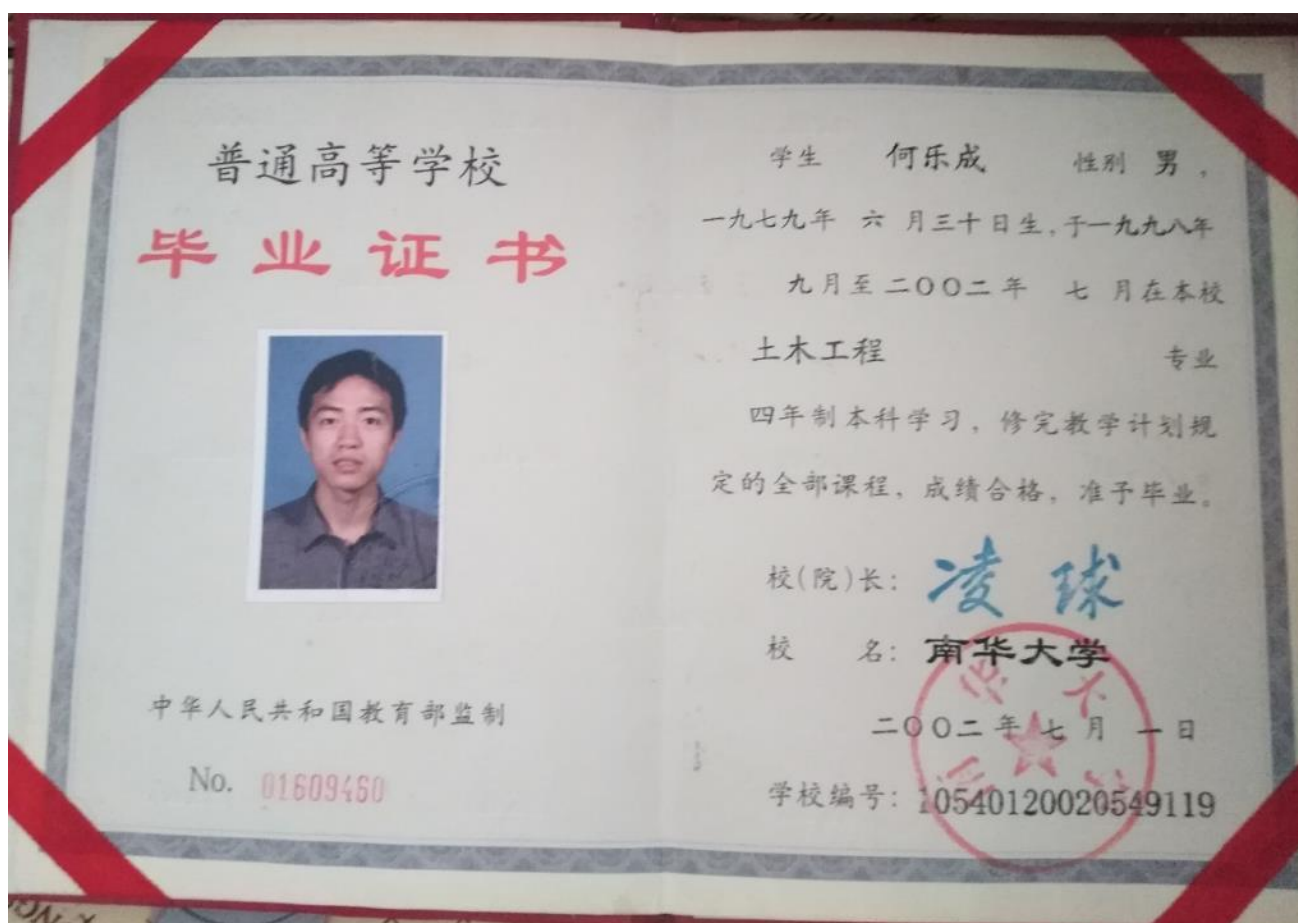 普通高等学校
毕业证书
中华人民共和国教育部监制
No. 01609460
学生 何乐成 性别 男，
一九七九年 六 月三十日生，于一九九八年
九月至二〇〇二年 七 月在本校
土木工程 专业
四年制本科学习，修完教学计划规
定的全部课程，成绩合格，准予毕业。
校(院)长：凌球
校 名：南华大学
二〇〇二年七月一日
学校编号：105401200205​49119